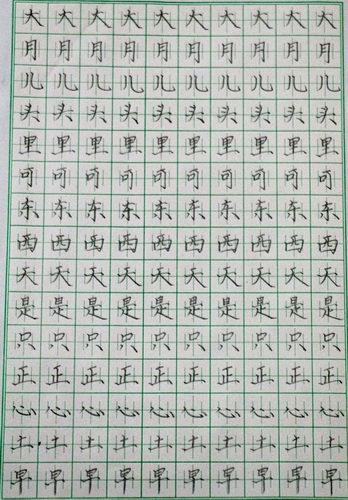 大大大大大大大大大大
月月月月月月月月月月
儿儿儿儿儿儿儿儿儿儿
头头头头头头头头头头
里里里里里里里里里里
可可可可可可可可可可
东东东东东东东东东东
西西西西西西西西西西
天天天天天天天天天天
是是是是是是是是是是
只只只只只只只只只只
正正正正正正正正正正
心心心心心心心心心心
土土土土土土土土土土
早早早早早早早早早早